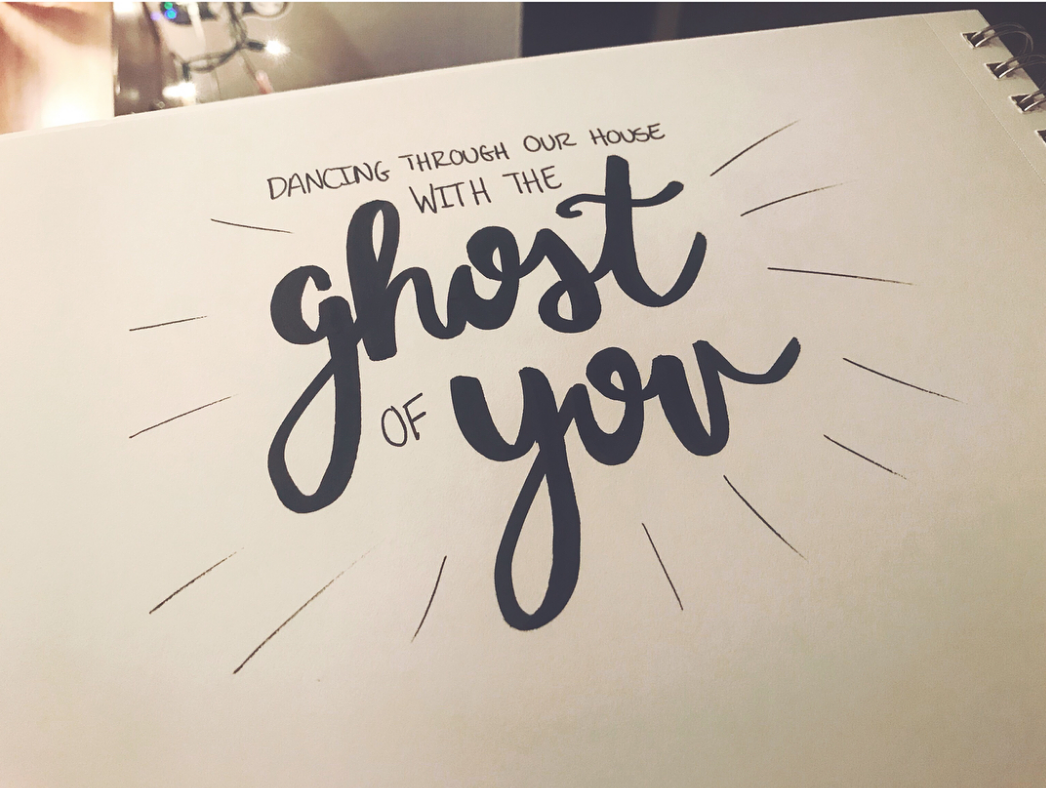 DANCING THROUGH OUR HOUSE
WITH THE
ghost
OF you